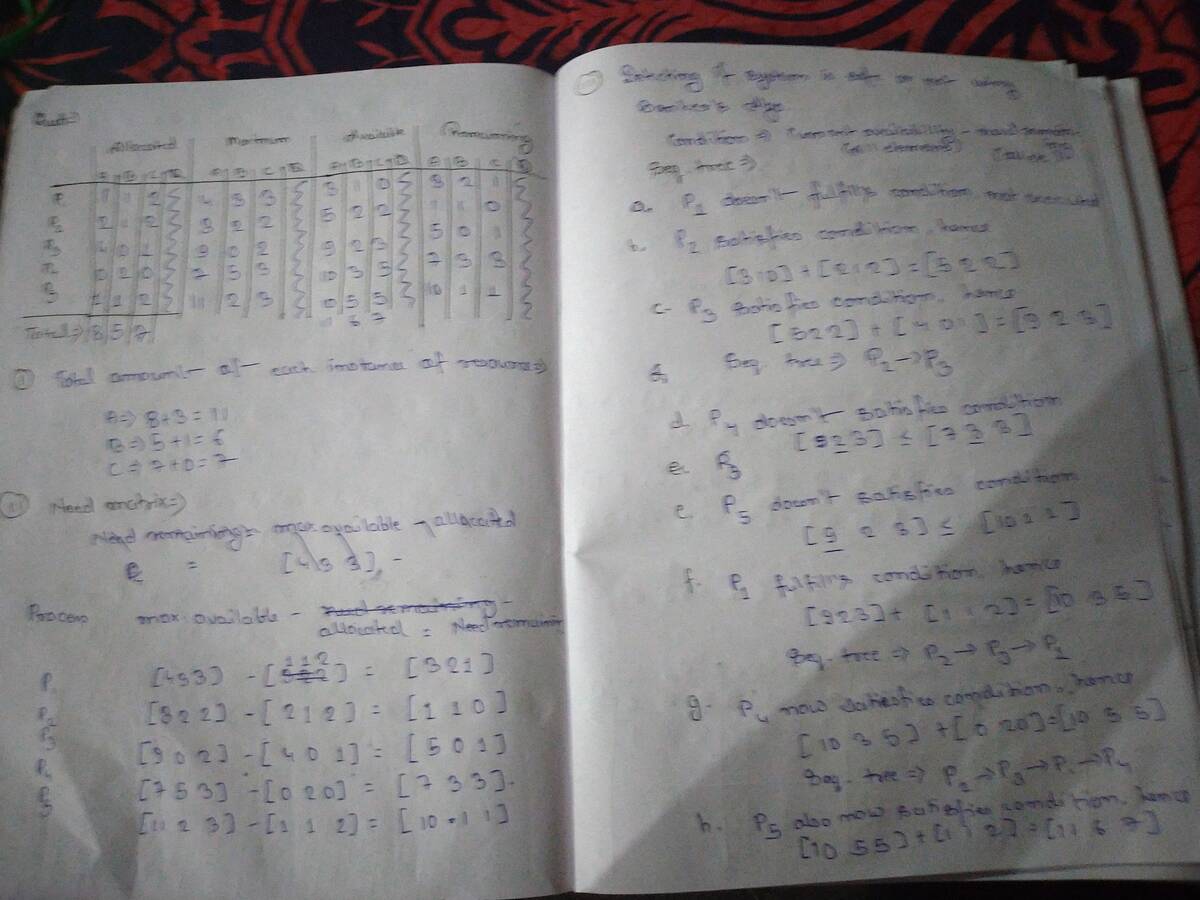 Allocated Maximum Available Remaining
A B C D A B C D A B C D A B C D
P1 1 1 2 4 3 3 3 1 0 3 2 1
P2 2 1 2 3 2 2 5 2 2 1 1 0
P3 4 0 1 9 0 2 9 2 3 5 0 1
P4 0 2 0 7 5 3 10 3 5 7 3 3
P5 1 1 2 11 2 3 10 5 5 10 1 1
Total => 8 5 7 11 6 7
i Total amount of each instance of resource =>
A => 8+3 = 11
B => 5+1 = 6
C => 7+0 = 7
ii Need matrix =>
Need remaining = max available - allocated
= [4 3 3] -
Process max. available - allocated = Need remain
P1 [4 3 3] - [1 1 2] = [3 2 1]
P2 [3 2 2] - [2 1 2] = [1 1 0]
P3 [9 0 2] - [4 0 1] = [5 0 1]
P4 [7 5 3] - [0 2 0] = [7 3 3].
P5 [11 2 3] - [1 1 2] = [10 1 1]
iii Detecting if system is safe or not using
Banker's algo.
Condition => Current availability - need remain.
Seq. tree =>
a. P1 doesn't fulfills condition, not executed
b. P2 satisfies condition, hence
[3 1 0] + [2 1 2] = [5 2 2]
c. P3 satisfies condition, hence
[5 2 2] + [4 0 1] = [9 2 3]
Seq. tree => P2 → P3
d. P4 doesn't satisfies condition
[9 2 3] ≤ [7 3 3]
e. P5 doesn't satisfies condition
[9 2 3] ≤ [10 1 1]
f. P1 fulfills condition, hence
[9 2 3] + [1 1 2] = [10 3 5]
Seq. tree => P2 → P3 → P1
g. P4 now satisfies condition, hence
[10 3 5] + [0 2 0] = [10 5 5]
Seq. tree => P2 → P3 → P1 → P4
h. P5 also now satisfies condition, hence
[10 5 5] + [1 1 2] = [11 6 7]